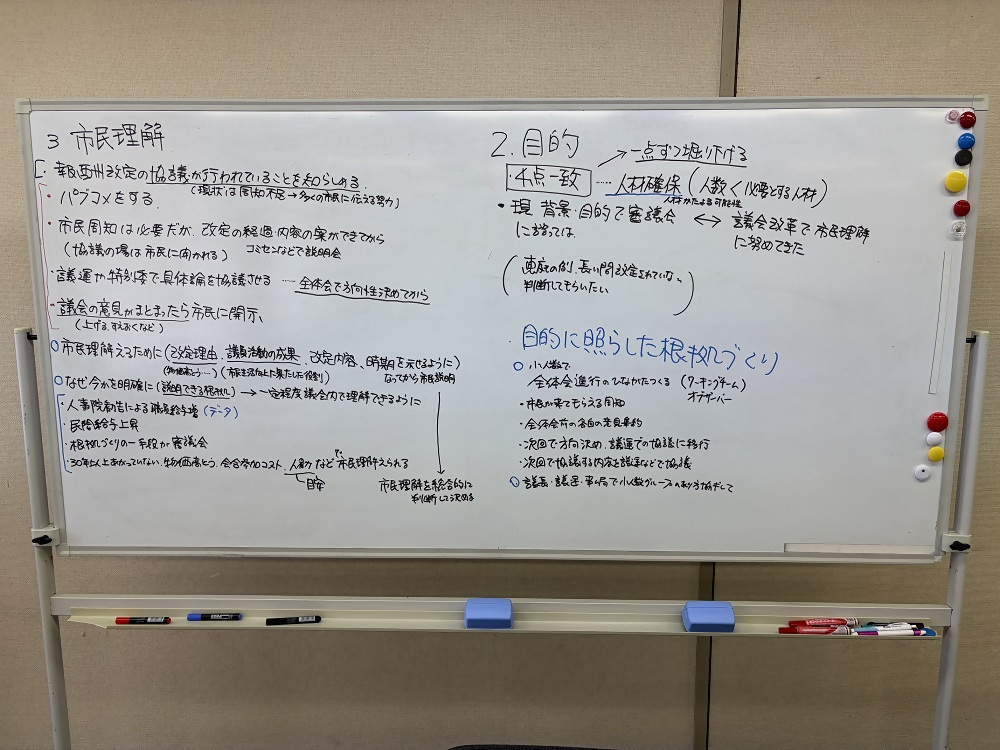 3 市民理解
・報酬改定の協議が行われていることを知らしめる。
(現状は周知不足→多くの市民に伝える努力)
・パブコメをする。
・市民周知は必要だが、改定の経過・内容の案ができてから
(協議の場は市民に開かれる) コミセンなどで説明会
・議運か特別委で具体論を協議させる ……全体会で方向性決めてから
・議会の意見がまとまったら市民に開示、
(上げる、すえおくなど)
○市民理解えるために(改定理由、議員活動の成果、改定内容、時期を示せるように)
(物価高とう…) (市民生活向上に果たした役割) なってから市民説明
○なぜ今かを明確に(説明できる根拠) → 一定程度議会内で理解できるように
・人事院勧告による職員給与増 (データ)
・民間給与上昇
・根拠づくりの一手段が審議会
・30年以上あがっていない、物価高とう、会合参加コスト、人勧などで市民理解えられる
目安
市民理解を総合的に
判断して決める
2. 目的
→一点ずつ堀り下げる
・4点一致 ……人材確保(人数<必要とする人材)
人材かたよる可能性
・現 背景・目的で審議会 ⟷ 議会改革で市民理解
に諮っては、 に努めてきた
(恵庭の例、長い間改定されていない、
判断してもらいたい)
目的に照らした根拠づくり
○小人数で
全体会進行のひながたつくる (ワーキングチーム)
オブザーバー
・市民が来てもらえる周知
・全体会前の各自の意見集約
・次回で方向決め、議運での協議に移行
・次回で協議する内容を議運などで協議
○議長・議運・事ム局で小人数グループのあり方協ギして